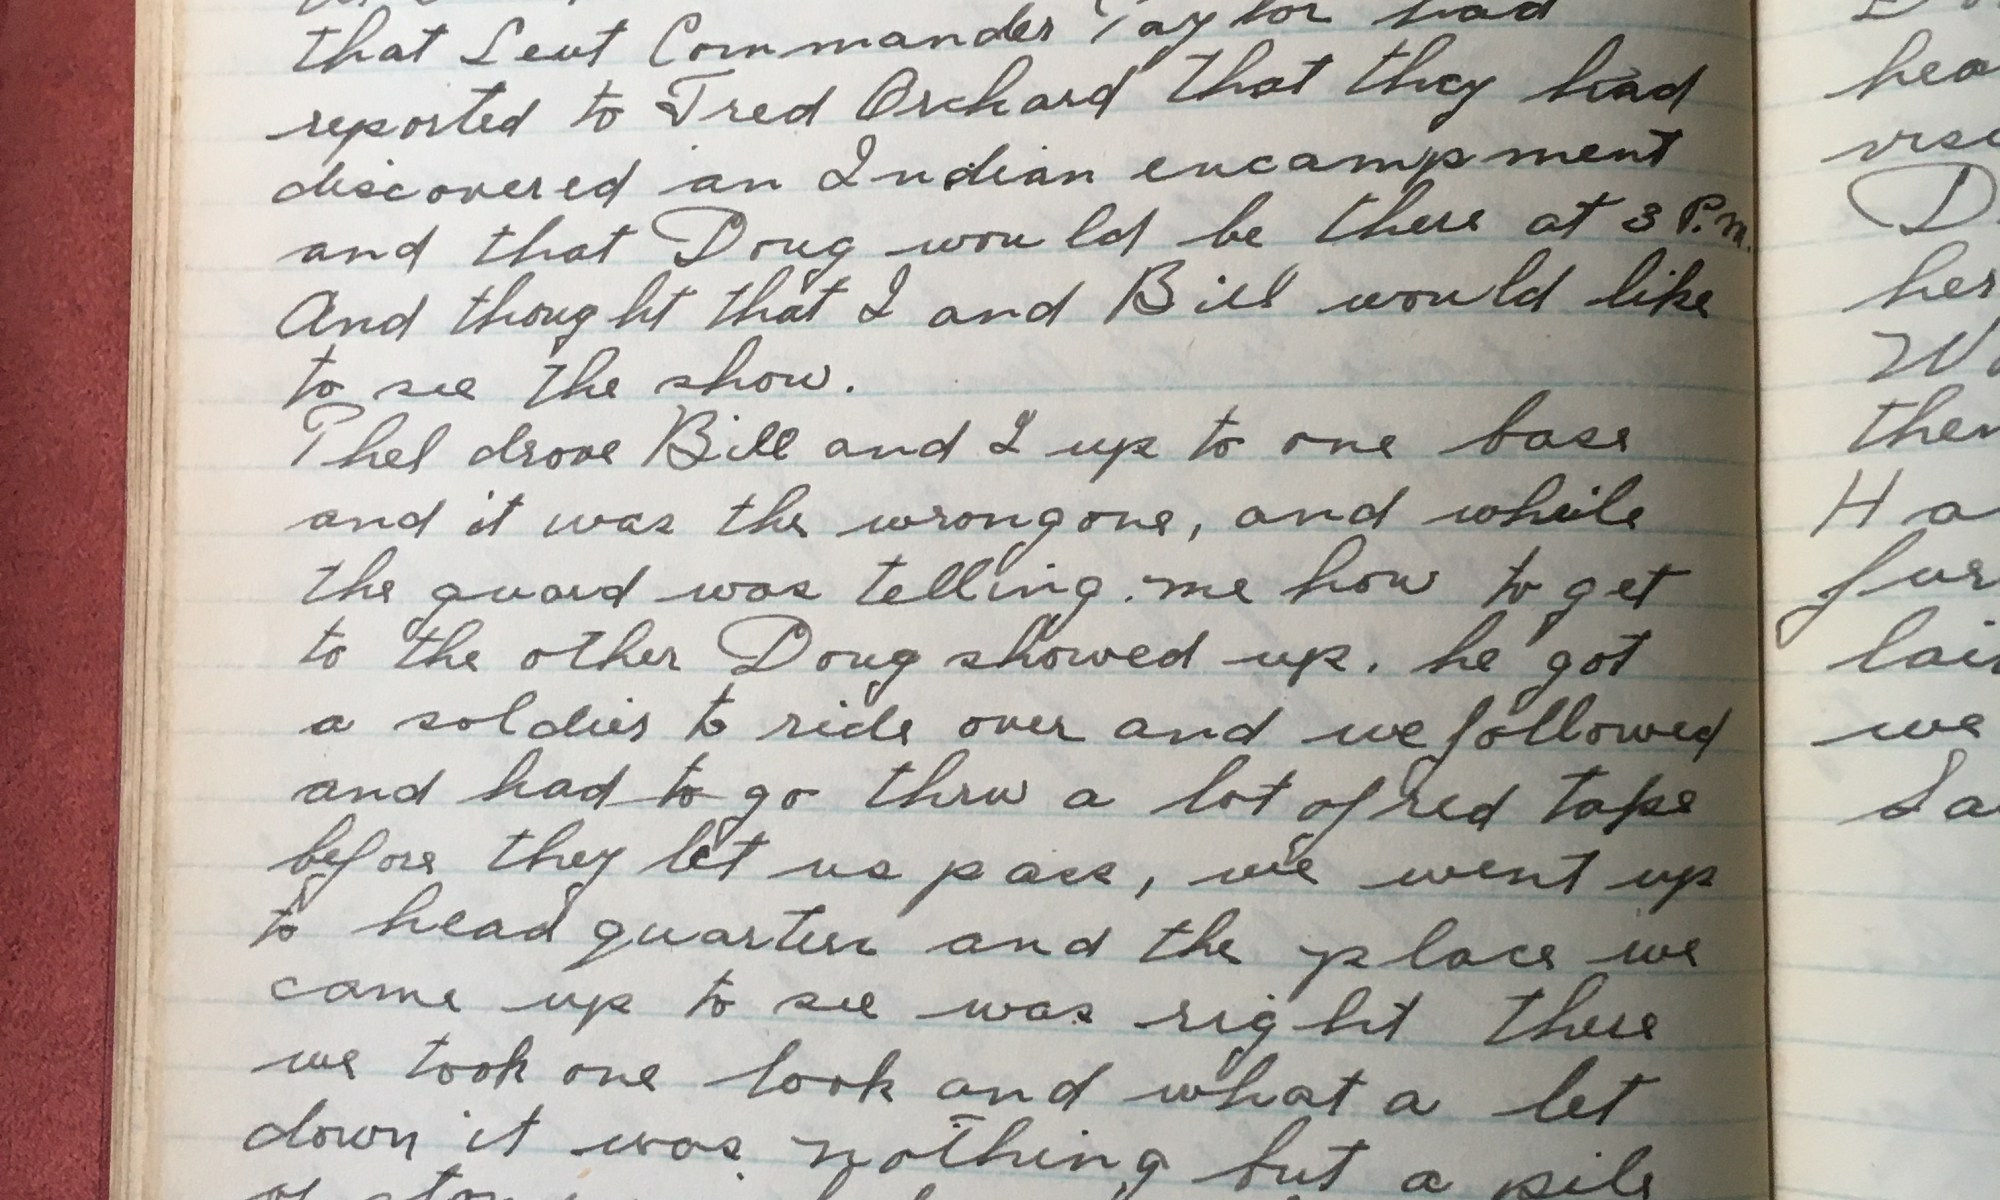 that Leut Commander Taylor had
reported to Fred Orchard that they had
discovered an Indian encampment
and that Doug would be there at 3 P.m.
And thought that I and Bill would like
to see the show.
Phel drove Bill and I up to one base
and it was the wrong one, and while
the guard was telling me how to get
to the other Doug showed up. he got
a soldier to ride over and we followed
and had to go thru a lot of red tape
before they let us pass, we went up
to head quarters and the place we
came up to see was right there
we took one look and what a let
down it was nothing but a pile
of
hea
D
her
W
then
Ha
fur
lai
we
Sa